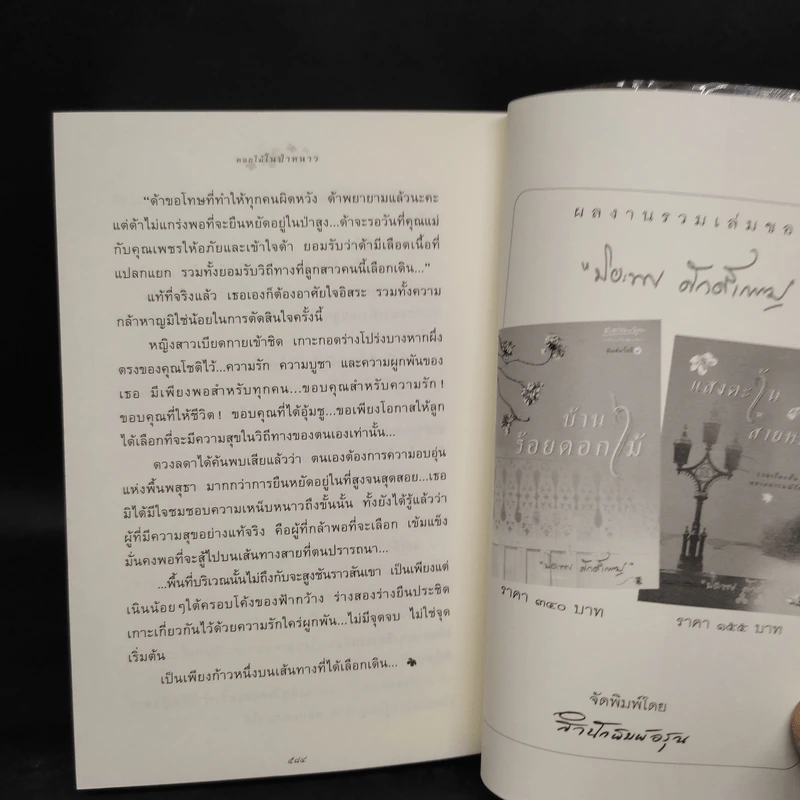 ดอกไม้ในป่าหนาว
“ด้าขอโทษที่ทำให้ทุกคนผิดหวัง ด้าพยายามแล้วนะคะ
แต่ด้าไม่แกร่งพอที่จะยืนหยัดอยู่ในป่าสูง...ด้าจะรอวันที่คุณแม่
กับคุณเพชรให้อภัยและเข้าใจด้า ยอมรับว่าด้ามีเลือดเนื้อที่
แปลกแยก รวมทั้งยอมรับวิถีทางที่ลูกสาวคนนี้เลือกเดิน...”
แท้ที่จริงแล้ว เธอเองก็ต้องอาศัยใจอิสระ รวมทั้งความ
กล้าหาญมิใช่น้อยในการตัดสินใจครั้งนี้
หญิงสาวเบียดกายเข้าชิด เกาะกอดร่างโปร่งบางหากผึ่ง
ตรงของคุณโชติไว้...ความรัก ความบูชา และความผูกพันของ
เธอ มีเพียงพอสำหรับทุกคน...ขอบคุณสำหรับความรัก!
ขอบคุณที่ให้ชีวิต! ขอบคุณที่ได้อุ้มชู...ขอเพียงโอกาสให้ลูก
ได้เลือกที่จะมีความสุขในวิถีทางของตนเองเท่านั้น...
ดวงลดาได้ค้นพบเสียแล้วว่า ตนเองต้องการความอบอุ่น
แห่งพื้นพสุธา มากกว่าการยืนหยัดอยู่ในที่สูงจนสุดสอย...เธอ
มิได้มีใจชมชอบความเหน็บหนาวถึงขั้นนั้น ทั้งยังได้รู้แล้วว่า
ผู้ที่มีความสุขอย่างแท้จริง คือผู้ที่กล้าพอที่จะเลือก เข้มแข็ง
มั่นคงพอที่จะสู้ไปบนเส้นทางสายที่ตนปรารถนา...
...พื้นที่บริเวณนั้นไม่ถึงกับจะสูงชันราวสันเขา เป็นเพียงแต่
เนินน้อยๆใต้ครอบโค้งของฟ้ากว้าง ร่างสองร่างยืนประชิด
เกาะเกี่ยวกันไว้ด้วยความรักใคร่ผูกพัน...ไม่มีจุดจบ ไม่ใช่จุด
เริ่มต้น
เป็นเพียงก้าวหนึ่งบนเส้นทางที่ได้เลือกเดิน...
๕๘๔
ผลงานรวมเล่มของ
"ปิยะพร ศักดิ์เกษม
บ้าน
ร้อยดอกไม้
"ปิยะพร ศักดิ์เกษม"
ราคา ๓๔๐ บาท
แสงตะวัน
สายห
ราคา ๑๕๕ บาท
จัดพิมพ์โดย
สำนักพิมพ์อรุณ